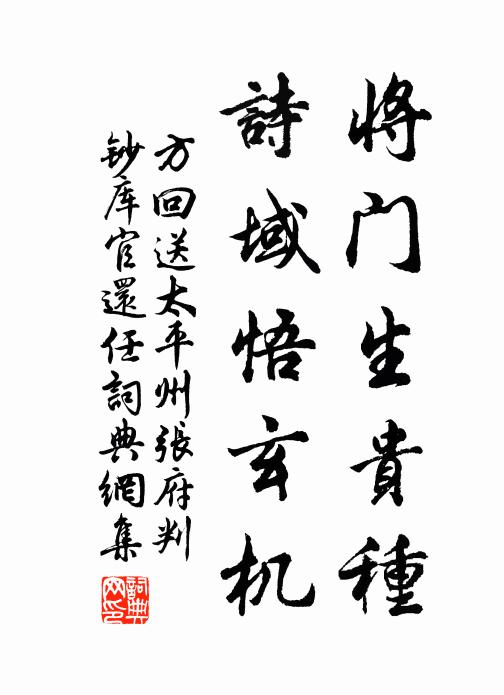 将门生貴種
詩域悟玄机
方回送太平州張府判
鈔库官還任詞典網集
詞典网印